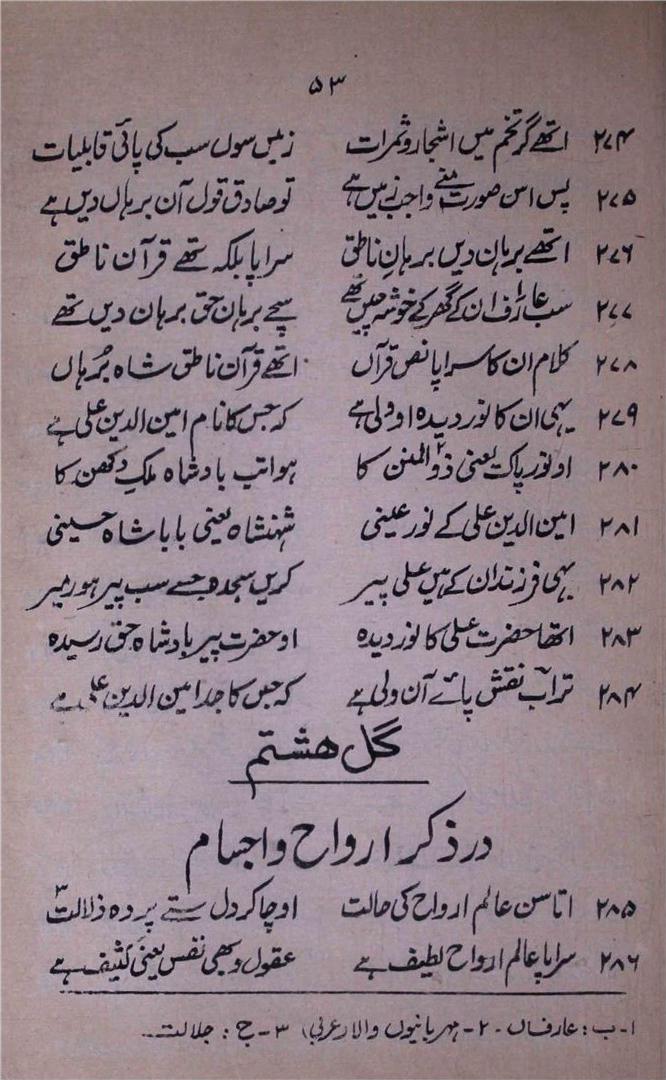 ۵۳
۲۷۴ اتھے گر تخم میں اشجار و ثمرات زمیں سوں سب کی پائی قابلیات
۲۷۵ پس اس صورت منے واجب نہیں ہے تو صادق قول آن برہاں دیں ہے
۲۷۶ اتھے برہان دیں برہانِ ناطق سراپا بلکہ تھے قرآن ناطق
۲۷۷ سب عارف ۱ ان کے گھر کے خوشہ چیں تھے سچے برہان حق برہان دیں تھے
۲۷۸ کلام ان کا سراپا نص قرآں اتھے قرآن ناطق شاہ بُرہاں
۲۷۹ یہی ان کا نور دیدہ او ولی ہے کہ جس کا نام امین الدین علی ہے
۲۸۰ او نور پاک یعنی ذوالمنن ۲ کا ہوا تب بادشاہ ملکِ دکھن کا
۲۸۱ امین الدین علی کے نور عینی شہنشاہ یعنی بابا شاہ حسینی
۲۸۲ یہی فرزند ان کے ہیں علی پیر کریں سجدہ جسے سب پیر ہور میر
۲۸۳ اتھا حضرت علی کا نور دیدہ او حضرت پیر بادشاہ حق رسیدہ
۲۸۴ تراب نقش پائے آن ولی ہے کہ جس کا جد امین الدین علی ہے
گل ہشتم
در ذکر ارواح و اجسام
۲۸۵ اتا سن عالم ارواح کی حالت اوچا کر دل ستے پردہ ذلالت ۳
۲۸۶ سراپا عالم ارواح لطیف ہے عقول و بھی نفس یعنی کثیف ہے
۱- ب: عارفاں - ۲- مہربانیوں والا (عربی) ۳- ج: جلالت